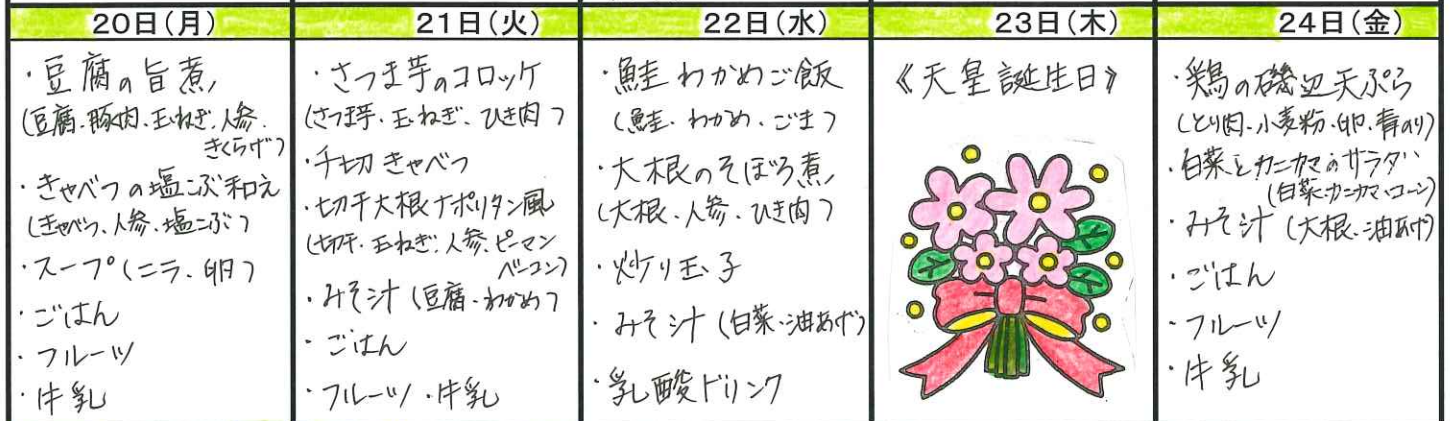 20日(月)
・豆腐の旨煮
(豆腐、豚肉、玉ねぎ、人参、
きくらげ)
・きゃべつの塩こぶ和え
(きゃべつ、人参、塩こぶ)
・スープ(ニラ、卵)
・ごはん
・フルーツ
・牛乳
21日(火)
・さつま芋のコロッケ
(さつま芋、玉ねぎ、ひき肉)
・千切きゃべつ
・切干大根ナポリタン風
(切干、玉ねぎ、人参、ピーマン
ベーコン)
・みそ汁(豆腐・わかめ)
・ごはん
・フルーツ・牛乳
22日(水)
・鮭わかめご飯
(鮭、わかめ、ごま)
・大根のそぼろ煮
(大根、人参、ひき肉)
・炒り玉子
・みそ汁(白菜・油あげ)
・乳酸ドリンク
23日(木)
《天皇誕生日》
24日(金)
・鶏の磯辺天ぷら
(とり肉、小麦粉、卵、青のり)
・白菜とカニカマのサラダ
(白菜・カニカマ・コーン)
・みそ汁(大根・油あげ)
・ごはん
・フルーツ
・牛乳